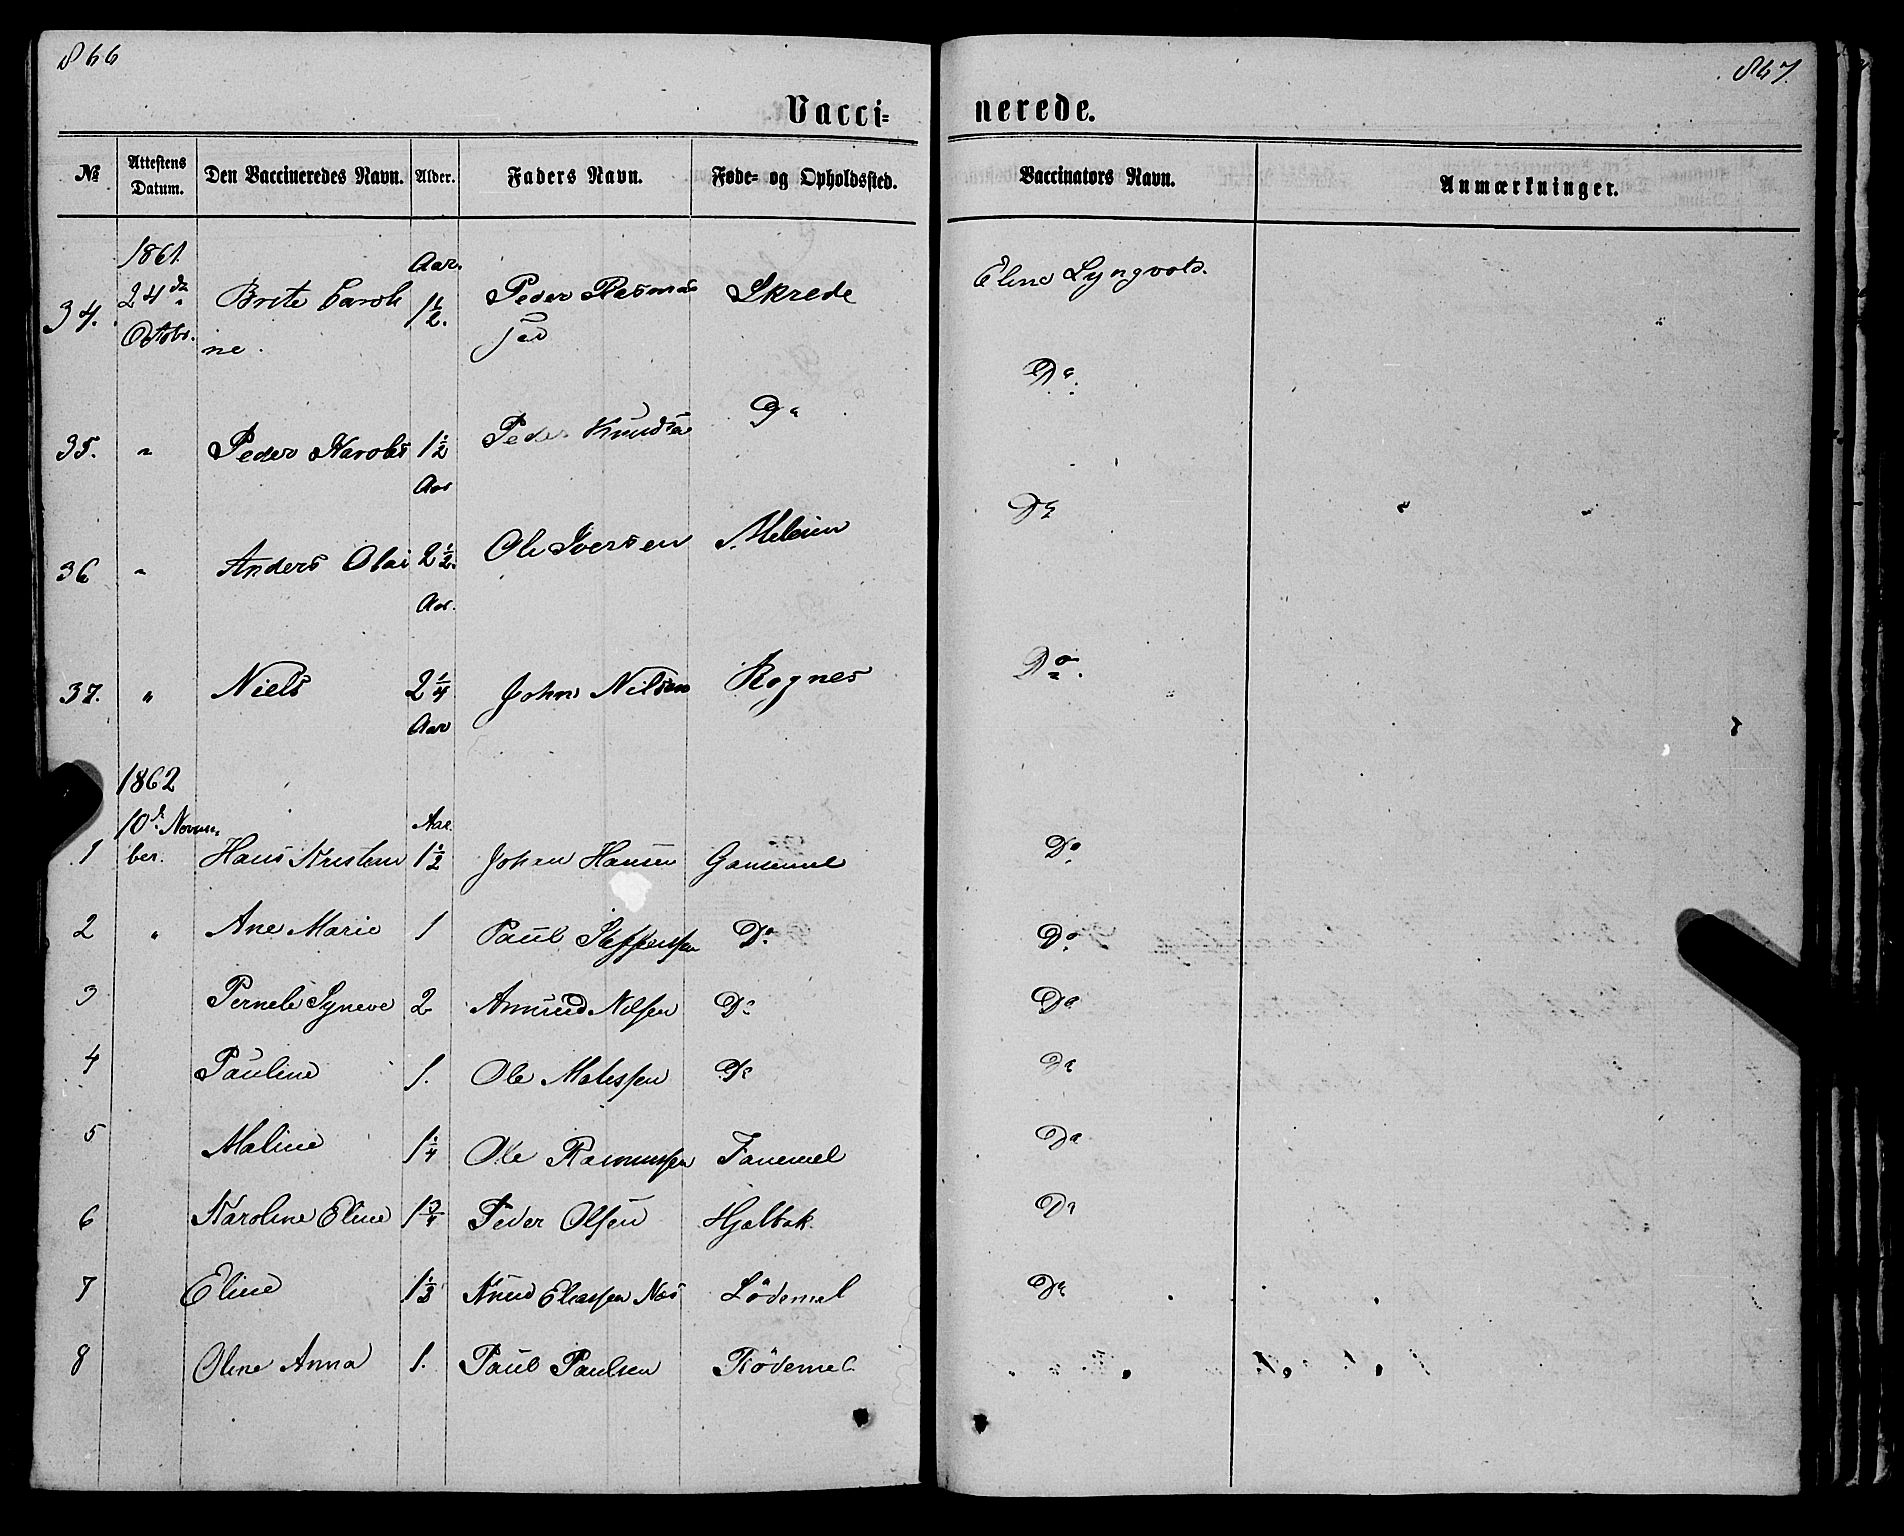 866
867.
Vacci=
nerede.
№ Attestens Datum. Den Vaccineredes Navn. Alder. Faders Navn. Føde= og Opholdssted. Vaccinators Navn. Anmærkninger.
1861. Aar.
34. 24de Brite Caroli 1½. Peder Rasmus Skrede Eline Lyngvold.
Octobr. ne. sen
35. " Peder Karolus 1½ Peder Knudsen Do Do.
Aar
36 " Anders Olai 2½. Ole Iversen Do
Aar.
37. " Niels 2¼ John Nilsen Rognes Do.
Aar
1862
10de Novem= Aar.
1 ber. Hans Kristian 1½ Johan Hansen Do
2 " Ane Marie 1 Paul Steffenssen Do. Do.
3 Pernele Syneve 2 Amund Nilssen Do Do
4 Pauline 1. Ole Do Do
5 Maline 1¼ Ole Rasmussen Do
6 Karoline Eline 1¾ Peder Olsen Hjelbak. Do
7 Eline 1⅓ Knud Eliassen Næs Lödemel Do
8 Oline Anna 1. Paul Paulsen Rödemel